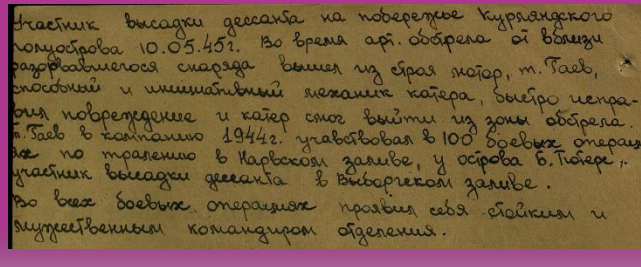 Участник высадки дессанта на побережье Курляндского
полуострова 10.05.45г. Во время арт. обстрела от вблизи
разорвавшегося снаряда вышел из строя мотор, т. Гаев,
способный и инициативный механик катера, быстро испра-
вил повреждение и катер смог выйти из зоны обстрела.
т. Гаев в компанию 1944г. учавствовал в 100 боевых операци
ях по тралению в Нарвском заливе, у острова Б. Тютерс,
участник высадки дессанта в Выборгском заливе.
Во всех боевых операциях проявил себя стойким и
мужественным командиром отделения.